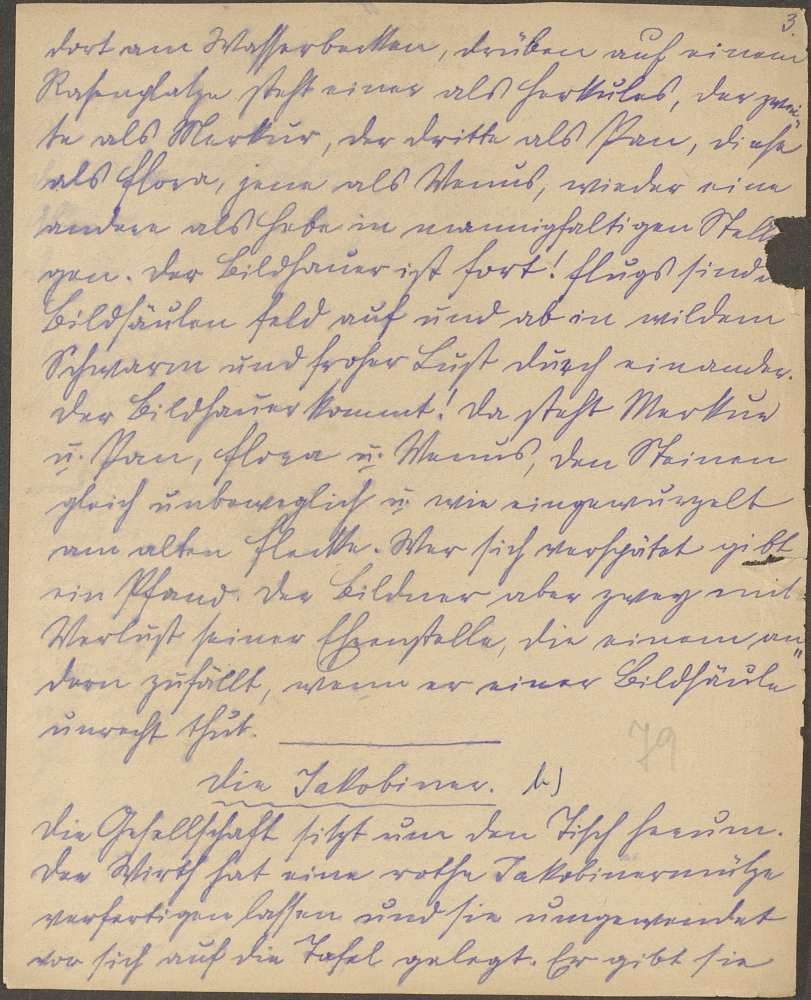 3.
dort am Wasserbecken, drüben auf einem
Rasenplatze steht einer als Herkules, der zwei-
te als Merkur, der dritte als Pan, diese
als Flora, jene als Venus, wieder eine
andere als Hebe in mannigfaltigen Stell
gen. Der Bildhauer ist fort! Flugs sind
Bildsäulen feld auf und ab in wildem
Schwarm und froher Lust durch einander.
Der Bildhauer kommt! Da steht Merkur
u. Pan, Flora u. Venus, den Steinen
gleich unbeweglich u. wie eingewurzelt
am alten Flecke. Wer sich verspätet gibt
ein Pfand. Der Bildner aber zwey mit
Verlust seiner Ehrenstelle, die einem an-
dern zufällt, wenn er einer Bildsäule
unrecht thut.
79
Die Jakobiner. b)
Die Gesellschaft sitzt um den Tisch herum.
Der Wirth hat eine rothe Jakobinermütze
verfertigen lassen und sie umgewendet
vor sich auf die Tafel gelegt. Er gibt sie